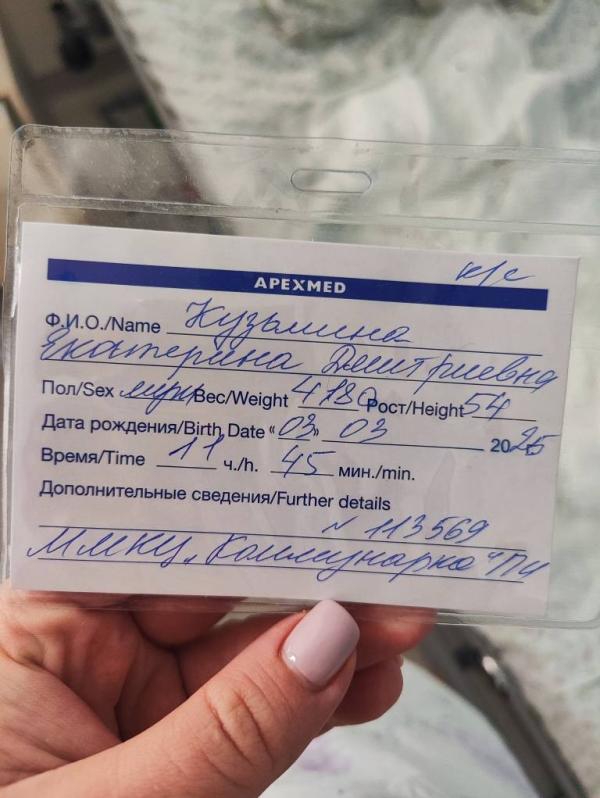 к/с
APEXMED
Ф.И.О./Name Кузьмина
Екатерина Дмитриевна
Пол/Sex муж Вес/Weight 4180 Рост/Height 54
Дата рождения/Birth Date «03» 03 2025
Время/Time 11 ч./h. 45 мин./min.
Дополнительные сведения/Further details
N 113569
ММКЦ „Коммунарка“ ПЦ